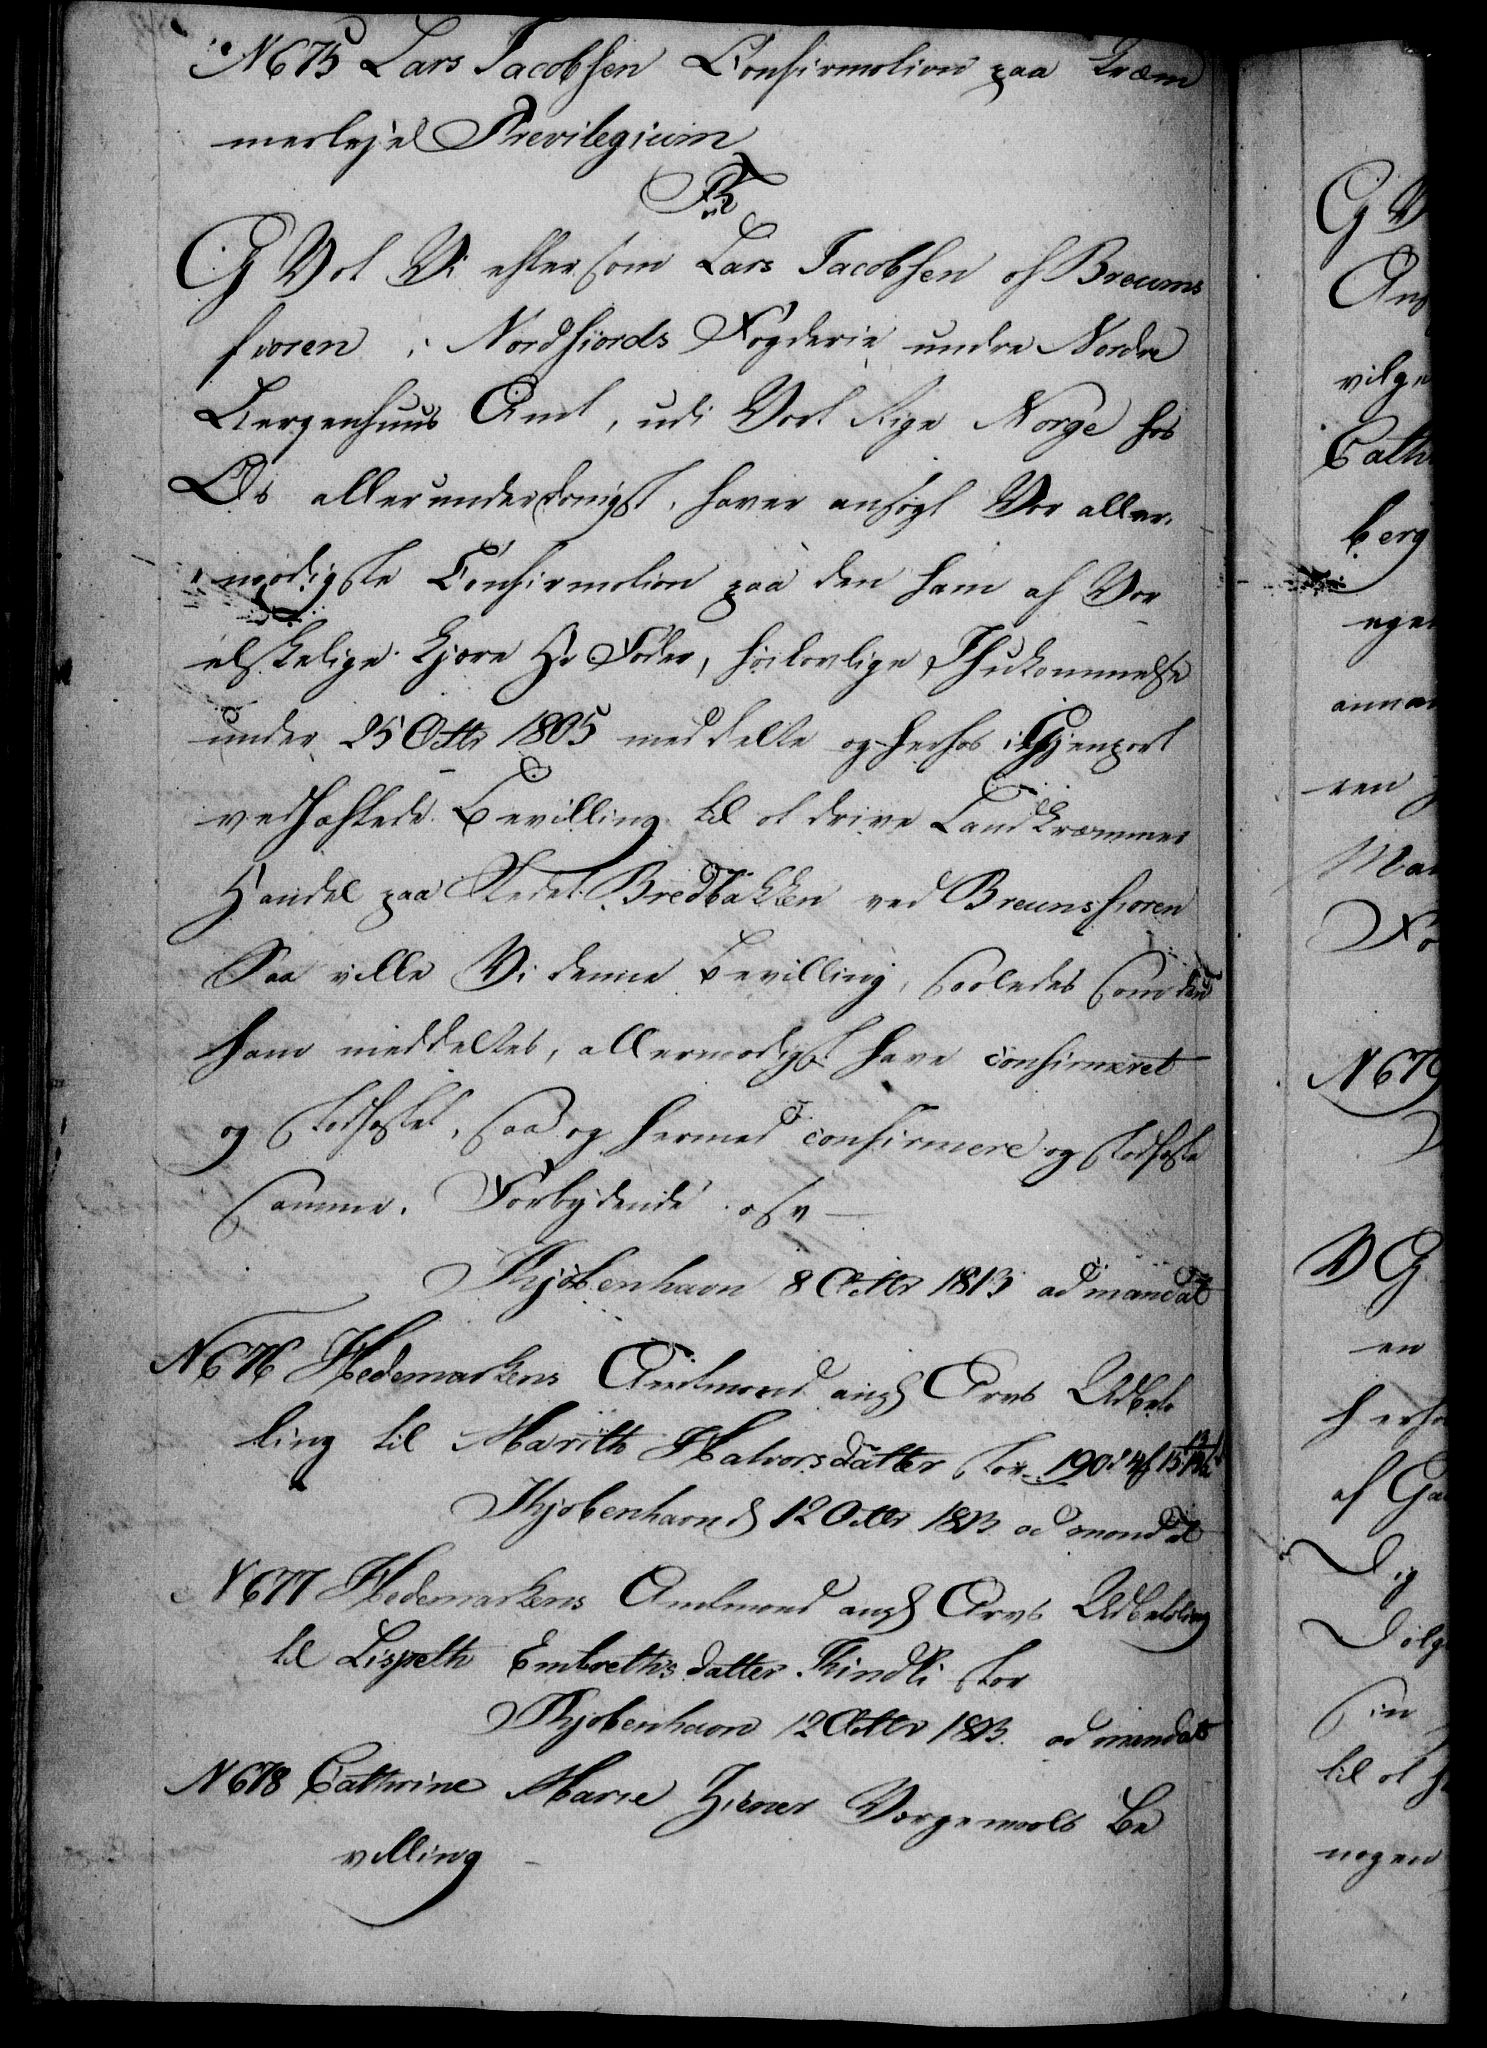 N 675 Lars Jacobsen Confirmation paa Kræm
merleje Previlegium
G Vot Vi eftersom Lars Jacobsen af Breums
fioren i Nordfiords Fogderie under Nordre
Bergenhuus Amt, udi Vort Rige Norge hos
Os allerunderdanigst, haver ansøgt Vor aller-
naadigste Confirmation paa den ham af Vor
elskelige kjære Hr Fader, høilovlige Ihukommelse
under 25 Octbr 1805 meddelte og herhos i Gjenpart
vedhæftede Bevilling til at drive Landkræmmer
Handel paa Stedet Bredbakken ved Breumsfioren
Saa ville Vi denne Bevilling, saaledes som den
ham meddeltes, allernaadigst have confirmeret
og stadfæstet, saa og hermed confirmere og stadfæste
samme. Forbydende osv
Kjøbenhavn 8 Octbr 1813 ad mandat
N 676 Hedemarkens Amtmand angd Arvs Udbeta
ling til Marith Halvorsdatter stor 190 4 15
Kjøbenhavn d 12 Octbr 1813 ad mandat
N 677 Hedemarkens Amtmand angd Arvs Udbetaling
til Lispeth Embrethsdatter Kindli stor
Kjøbenhavn 12 Octbr 1813 ad mandat
N 678 Cathrine Marie Ziener Værgemaals Be
villing
G V
Ans
vilge
Cathr
berg
egen
annam
ren
Mar
Fo
N 679
V G
en
herho
af Ga
Dig
Dilge
sin
til at h
nogen